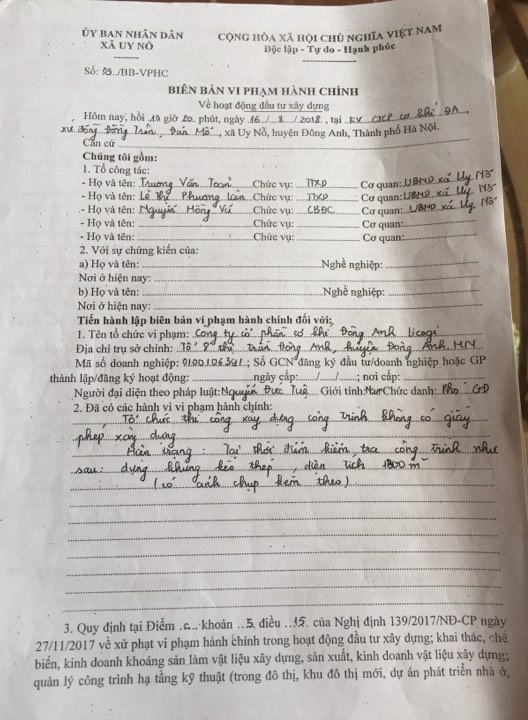 ỦY BAN NHÂN DÂN
XÃ UY NỖ
CỘNG HÒA XÃ HỘI CHỦ NGHĨA VIỆT NAM
Độc lập - Tự do - Hạnh phúc
Số: /BB-VPHC
BIÊN BẢN VI PHẠM HÀNH CHÍNH
Về hoạt động đầu tư xây dựng
Hôm nay, hồi giờ 20 phút, ngày 16 / 8 / 2018, tại KV cơ khí ĐA
xứ đồng Đồng Trần, Đản Mỗ, xã Uy Nỗ, huyện Đông Anh, Thành phố Hà Nội.
Căn cứ
Chúng tôi gồm:
1. Tổ công tác:
- Họ và tên: Trương Văn Toản Chức vụ: TTXD Cơ quan: UBND xã Uy Nỗ
- Họ và tên: Lê Thị Phương Chức vụ: TTXD Cơ quan: UBND xã Uy Nỗ
- Họ và tên: Nguyễn Hồng Vũ Chức vụ: CBĐC Cơ quan: UBND xã Uy Nỗ
- Họ và tên: Chức vụ: Cơ quan:
- Họ và tên: Chức vụ: Cơ quan:
2. Với sự chứng kiến của:
a) Họ và tên: Nghề nghiệp:
Nơi ở hiện nay:
b) Họ và tên: Nghề nghiệp:
Nơi ở hiện nay:
Tiến hành lập biên bản vi phạm hành chính đối với:
1. Tên tổ chức vi phạm: Công ty cổ phần cơ khí Đông Anh Licogi
Địa chỉ trụ sở chính: Tổ 8 thị trấn Đông Anh, huyện Đông Anh, HN
Mã số doanh nghiệp: 0100106391; Số GCN đăng ký đầu tư/doanh nghiệp hoặc GP
thành lập/đăng ký hoạt động: ngày cấp: / / ; nơi cấp:
Người đại diện theo pháp luật: Nguyễn Đức Tuệ Giới tính: Nam Chức danh: Phó GĐ
2. Đã có các hành vi vi phạm hành chính:
Tổ chức thi công xây dựng công trình không có giấy
phép xây dựng
Hiện trạng: Tại thời điểm kiểm tra công trình như
sau: dựng khung kèo thép, diện tích 1800 m²
(có ảnh chụp kèm theo)
3. Quy định tại Điểm c khoản 5 điều 15 của Nghị định 139/2017/NĐ-CP ngày
27/11/2017 về xử phạt vi phạm hành chính trong hoạt động đầu tư xây dựng; khai thác, chế
biến, kinh doanh khoáng sản làm vật liệu xây dựng, sản xuất, kinh doanh vật liệu xây dựng;
quản lý công trình hạ tầng kỹ thuật (trong đô thị, khu đô thị mới, dự án phát triển nhà ở,